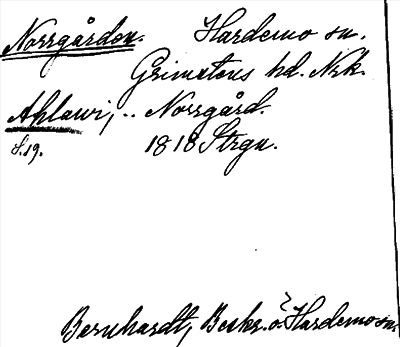 Norrgården. Hardemo sn.
Grimstens hd. Nrk.
Ahlawi, .. Norrgård.
S.19. 1818 Strgn.
Bernhardt, Beskr. ö. Hardemo sn.